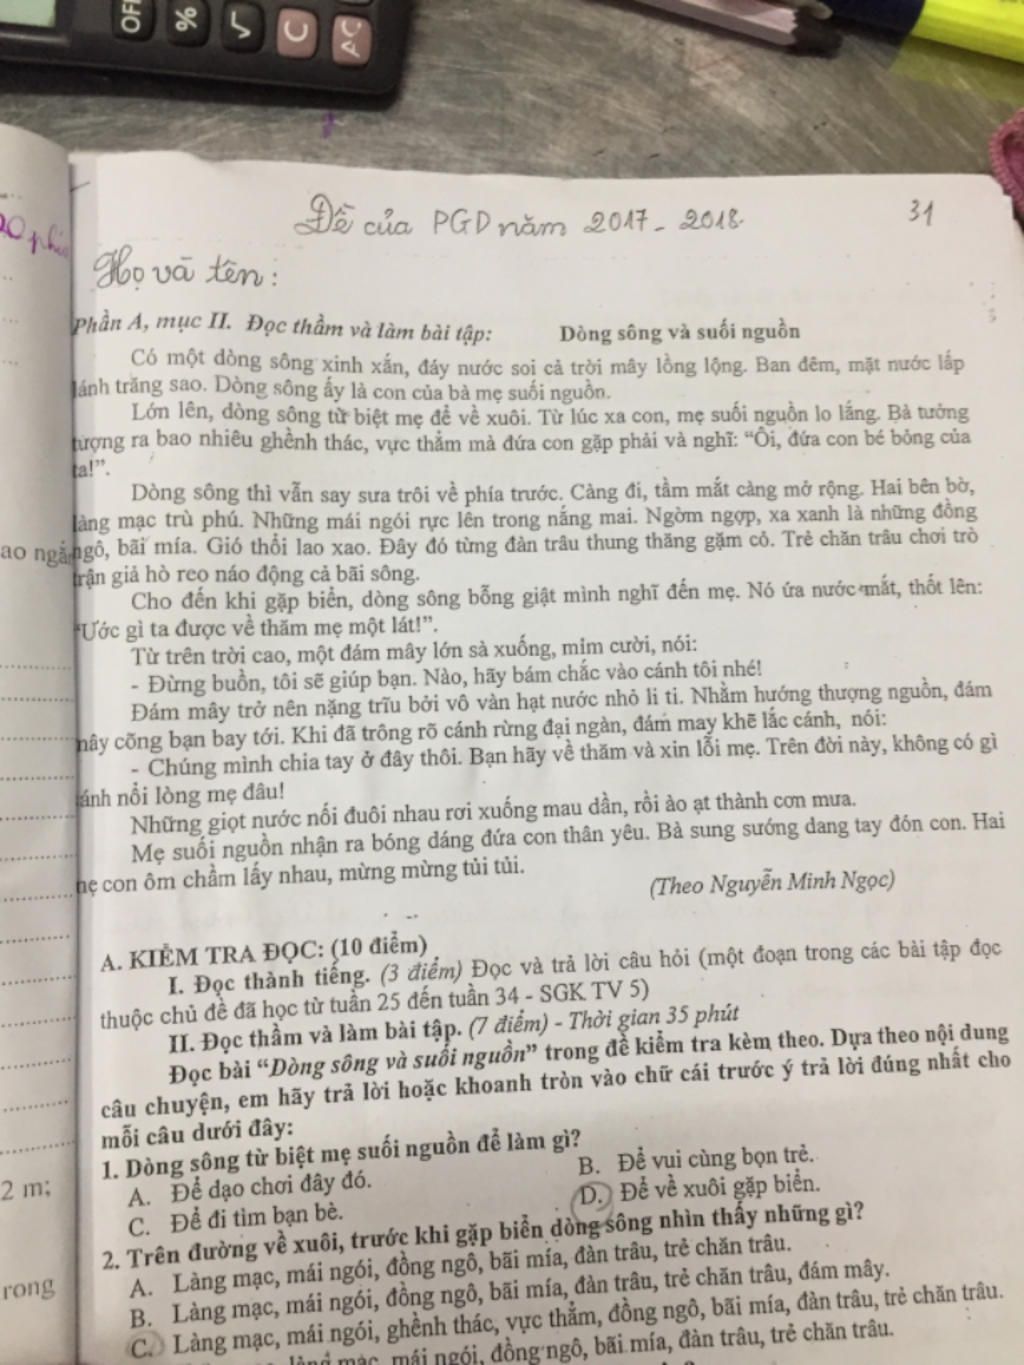 OFF
%
√
C
AC
20 phú
Đề của PGD năm 2017 - 2018
31
Họ và tên:
Phần A, mục II. Đọc thầm và làm bài tập: Dòng sông và suối nguồn
Có một dòng sông xinh xắn, đáy nước soi cả trời mây lồng lộng. Ban đêm, mặt nước lấp
lánh trăng sao. Dòng sông ấy là con của bà mẹ suối nguồn.
Lớn lên, dòng sông từ biệt mẹ để về xuôi. Từ lúc xa con, mẹ suối nguồn lo lắng. Bà tưởng
tượng ra bao nhiêu ghềnh thác, vực thẳm mà đứa con gặp phải và nghĩ: “Ôi, đứa con bé bỏng của
ta!”.
Dòng sông thì vẫn say sưa trôi về phía trước. Càng đi, tầm mắt càng mở rộng. Hai bên bờ,
làng mạc trù phú. Những mái ngói rực lên trong nắng mai. Ngờm ngợp, xa xanh là những đồng
ngô, bãi mía. Gió thổi lao xao. Đây đó từng đàn trâu thung thăng gặm cỏ. Trẻ chăn trâu chơi trò
trận giả hò reo náo động cả bãi sông.
Cho đến khi gặp biển, dòng sông bỗng giật mình nghĩ đến mẹ. Nó ứa nước mắt, thốt lên:
“Ước gì ta được về thăm mẹ một lát!”.
Từ trên trời cao, một đám mây lớn sà xuống, mỉm cười, nói:
- Đừng buồn, tôi sẽ giúp bạn. Nào, hãy bám chắc vào cánh tôi nhé!
Đám mây trở nên nặng trĩu bởi vô vàn hạt nước nhỏ li ti. Nhằm hướng thượng nguồn, đám
mây cõng bạn bay tới. Khi đã trông rõ cánh rừng đại ngàn, đám may khẽ lắc cánh, nói:
- Chúng mình chia tay ở đây thôi. Bạn hãy về thăm và xin lỗi mẹ. Trên đời này, không có gì
sánh nổi lòng mẹ đâu!
Những giọt nước nối đuôi nhau rơi xuống mau dần, rồi ào ạt thành cơn mưa.
Mẹ suối nguồn nhận ra bóng dáng đứa con thân yêu. Bà sung sướng dang tay đón con. Hai
mẹ con ôm chầm lấy nhau, mừng mừng tủi tủi.
(Theo Nguyễn Minh Ngọc)
A. KIỂM TRA ĐỌC: (10 điểm)
I. Đọc thành tiếng. (3 điểm) Đọc và trả lời câu hỏi (một đoạn trong các bài tập đọc
thuộc chủ đề đã học từ tuần 25 đến tuần 34 - SGK TV 5)
II. Đọc thầm và làm bài tập. (7 điểm) - Thời gian 35 phút
Đọc bài “Dòng sông và suối nguồn” trong đề kiểm tra kèm theo. Dựa theo nội dung
câu chuyện, em hãy trả lời hoặc khoanh tròn vào chữ cái trước ý trả lời đúng nhất cho
mỗi câu dưới đây:
1. Dòng sông từ biệt mẹ suối nguồn để làm gì?
A. Để dạo chơi đây đó. B. Để vui cùng bọn trẻ.
C. Để đi tìm bạn bè. D. Để về xuôi gặp biển.
2. Trên đường về xuôi, trước khi gặp biển dòng sông nhìn thấy những gì?
A. Làng mạc, mái ngói, đồng ngô, bãi mía, đàn trâu, trẻ chăn trâu.
B. Làng mạc, mái ngói, đồng ngô, bãi mía, đàn trâu, trẻ chăn trâu, đám mây.
C. Làng mạc, mái ngói, ghềnh thác, vực thẳm, đồng ngô, bãi mía, đàn trâu, trẻ chăn trâu.
làng mạc, mái ngói, đồng ngô, bãi mía, đàn trâu, trẻ chăn trâu.
2 m;
rong